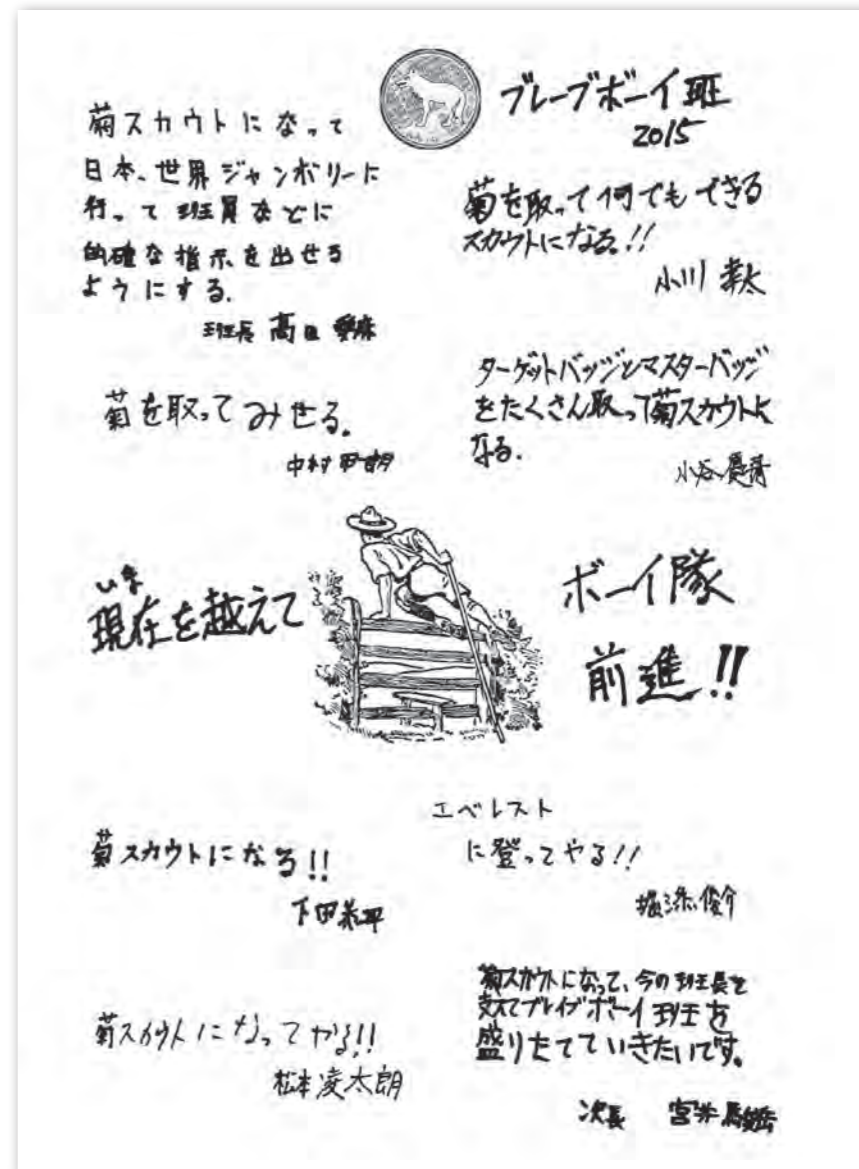 ブレーブボーイ班
2015
菊スカウトになって
日本、世界ジャンボリーに
行って班員などに
的確な指示を出せる
ようにする。
班長 高田
菊を取って何でもできる
スカウトになる。!!
小川 幸太
菊を取ってみせる。
中村
ターゲットバッジとマスターバッジ
をたくさん取って菊スカウトに
なる。
小谷
いま
現在を越えて
ボーイ隊
前進!!
菊スカウトになる!!
下田 恭平
エベレスト
に登ってやる!!
堀添 俊介
菊スカウトになってやる!!
松本凌太朗
菊スカウトになって、今の班長を
支えてブレイブボーイ班を
盛りたてていきたいです。
次長 宮井